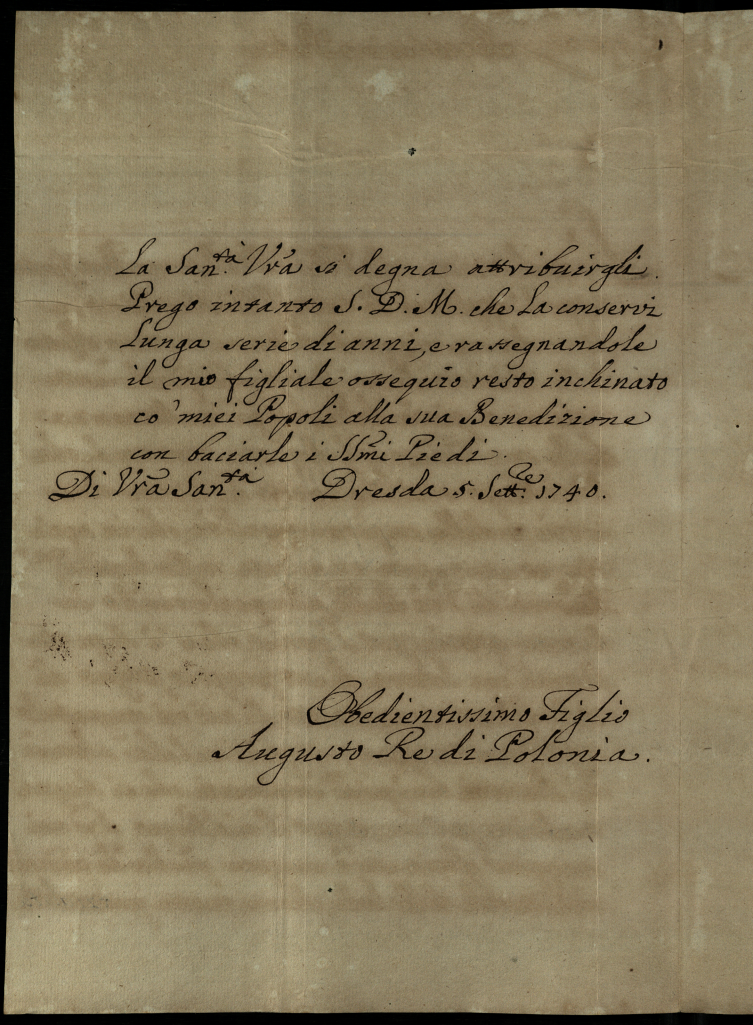 La San.tà Vra si degna attribuirgli.
Prego intanto S. D. M. che La conservi
Lunga serie di anni, e rassegnandole
il mio figliale ossequio resto inchinato
co' miei Popoli alla sua Benedizione
con baciarle i SSmi Piedi.
Di Vra San.tà Dresda 5. Sett.re 1740.
Obedientissimo Figlio
Augusto Re di Polonia.